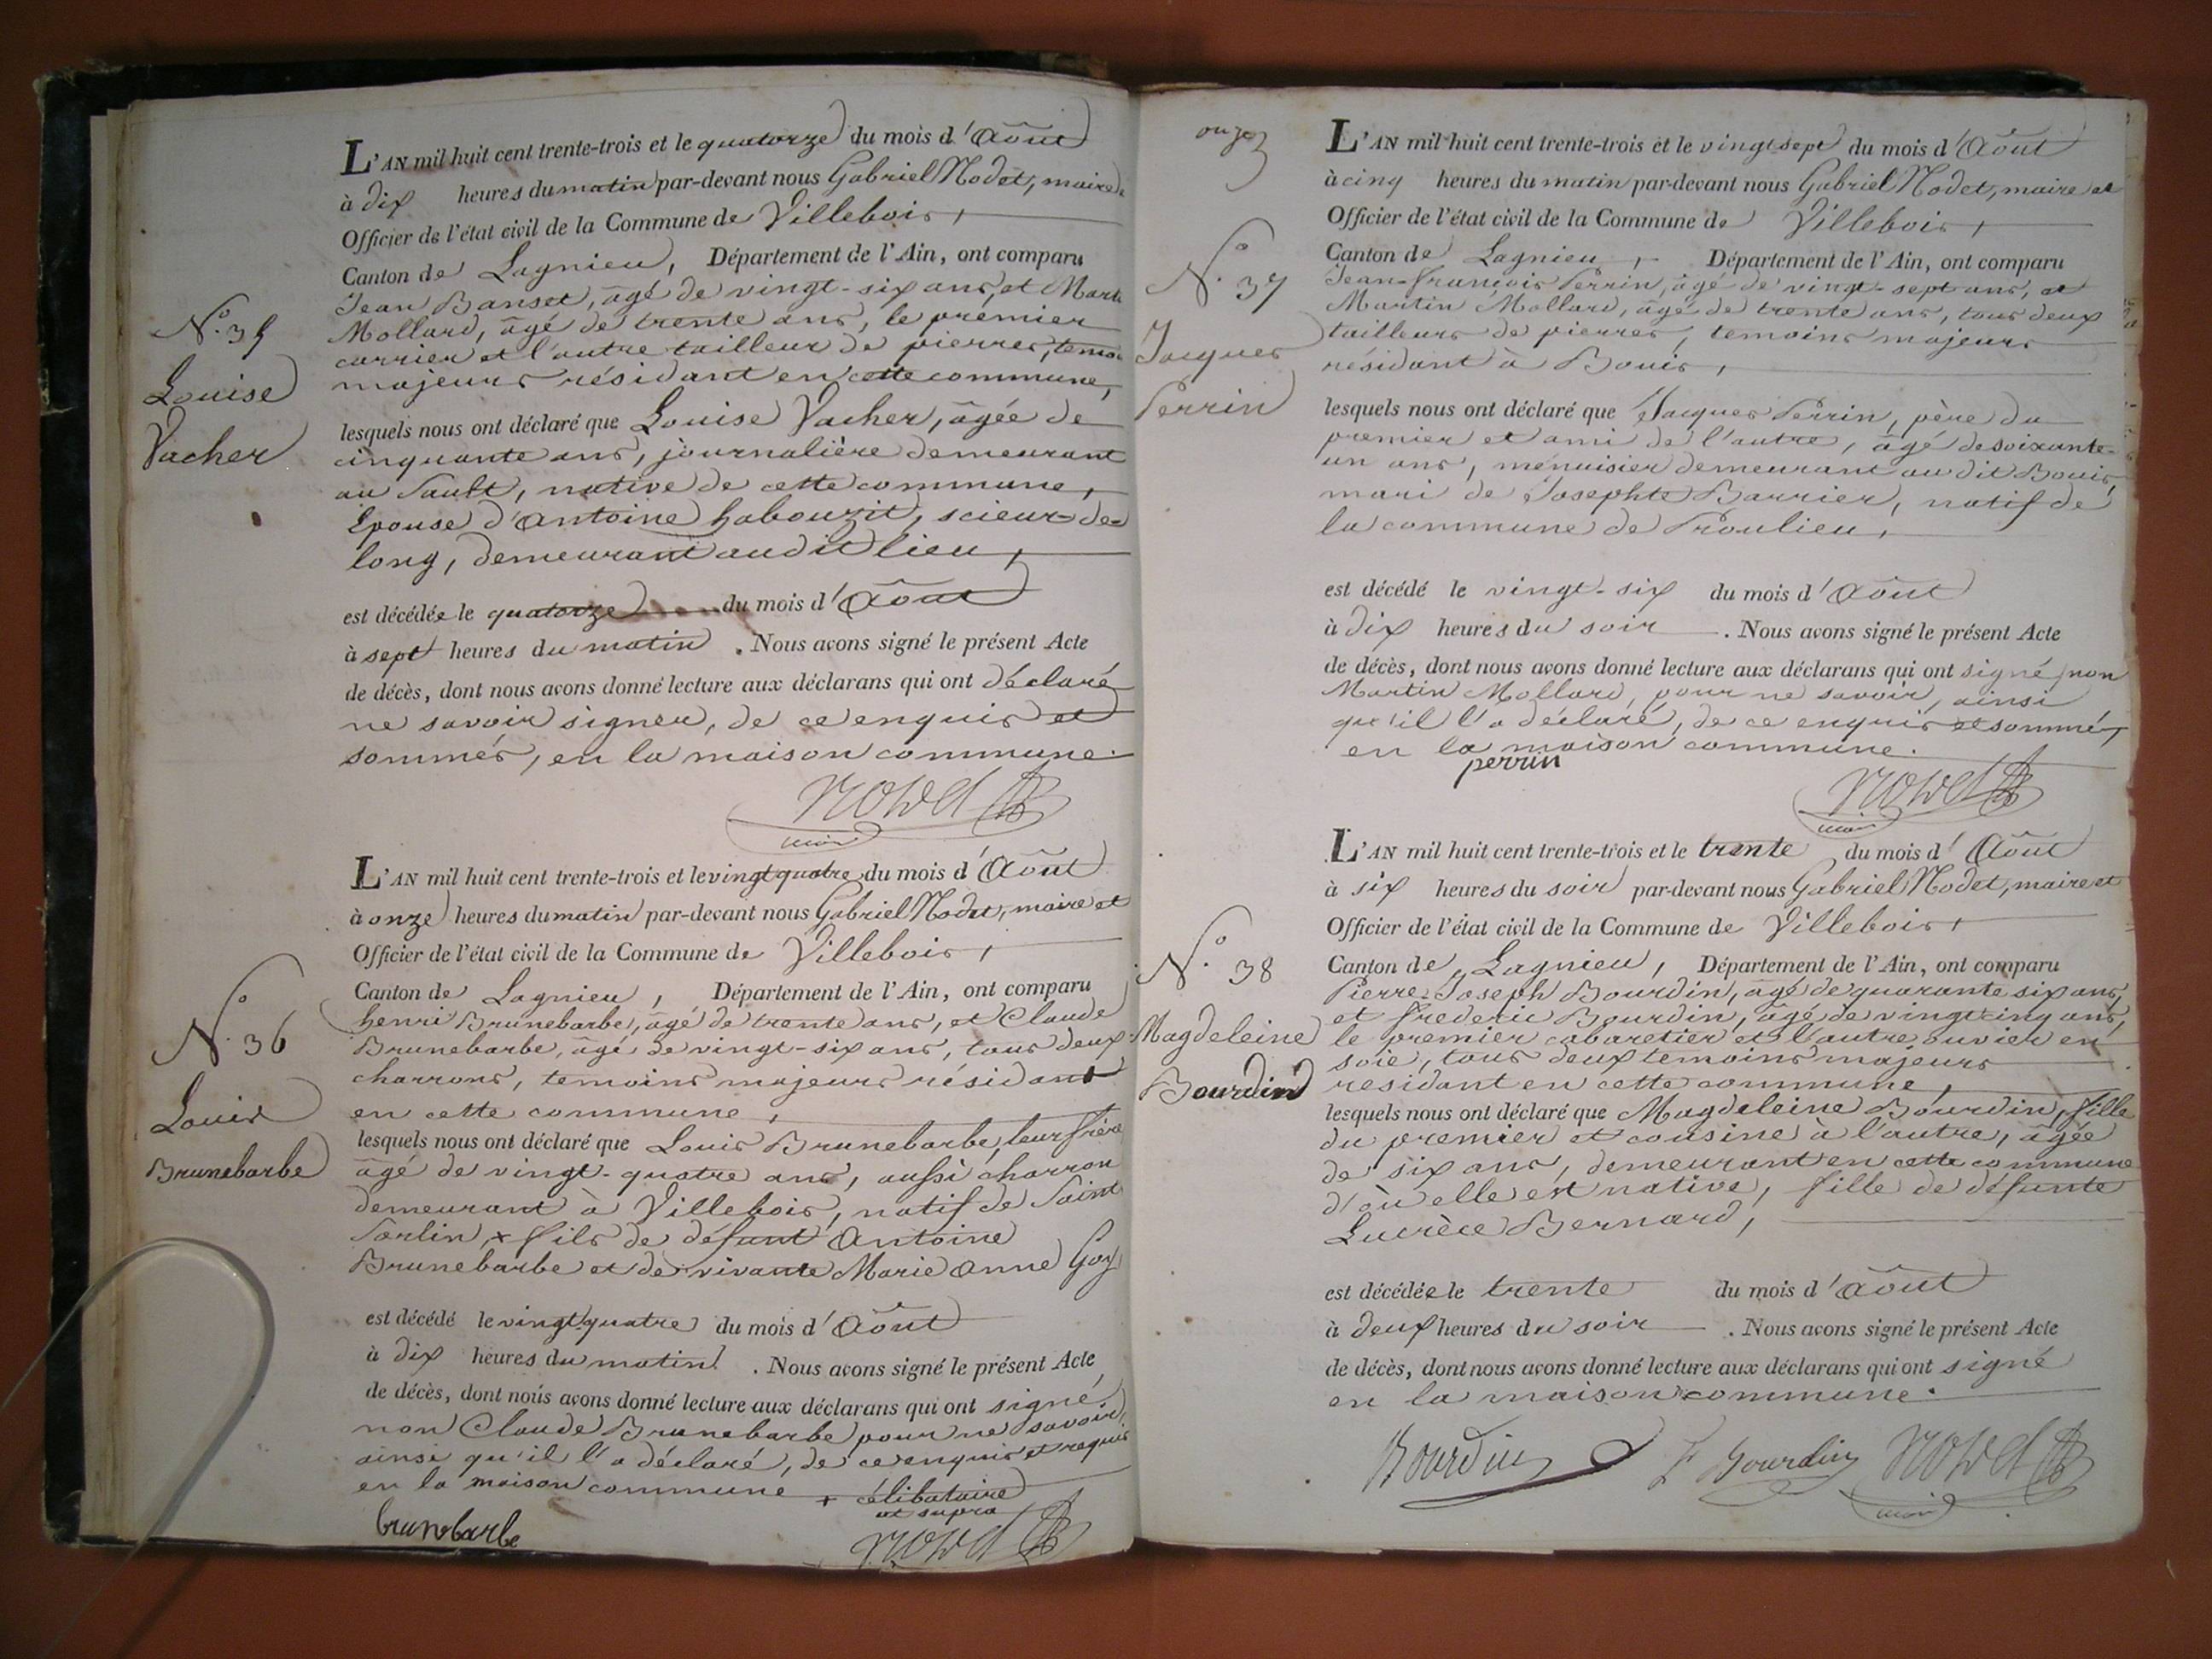 N.º 35
Louise
Vacher
L'AN mil huit cent trente-trois et le quatorze du mois d'Août
à dix heures du matin par-devant nous Gabriel Nodet, maire
Officier de l'état civil de la Commune de Villebois,
Canton de Lagnieu, Département de l'Ain, ont comparu
Jean Banset, âgé de vingt-six ans, et Mart
Mollard, âgé de trente ans, le premier
carrier et l'autre tailleur de pierres, temo
majeurs résidant en cette commune,
lesquels nous ont déclaré que Louise Vacher, âgée de
cinquante ans, journalière demeurant
au Sault, native de cette commune,
Epouse d'Antoine habouzit, scieur-de-
long, demeurant audit lieu,
est décédée le quatorze du mois d'Août
à sept heures du matin. Nous avons signé le présent Acte
de décès, dont nous avons donné lecture aux déclarans qui ont déclaré
ne savoir signer, de ce enquis et
sommés, en la maison commune.
Nodet
maire
N.º 36
Louis
Brunebarbe
L'AN mil huit cent trente-trois et le vingt quatre du mois d'Août
à onze heures du matin par-devant nous Gabriel Nodet, maire et
Officier de l'état civil de la Commune de Villebois,
Canton de Lagnieu, Département de l'Ain, ont comparu
henri Brunebarbe, âgé de trente ans, et Claude
Brunebarbe, âgé de vingt-six ans, tous deux
charrons, temoins majeurs résidant
en cette commune,
lesquels nous ont déclaré que Louis Brunebarbe, leur frère
âgé de vingt-quatre ans, aussi charron
demeurant à Villebois, natif de Saint
Sorlin, x fils de défunt Antoine
Brunebarbe et de vivante Marie Anne Goy
est décédé le vingt quatre du mois d'Août
à dix heures du matin. Nous avons signé le présent Acte
de décès, dont nous avons donné lecture aux déclarans qui ont signé
non Claude Brunebarbe pour ne savoir
ainsi qu'il l'a déclaré, de ce enquis et requis
en la maison commune x célibataire
ut supra
brunebarbe
Nodet
onze
N.º 37
Jacques
Perrin
L'AN mil huit cent trente-trois et le vingt sept du mois d'Août
à cinq heures du matin par-devant nous Gabriel Nodet, maire et
Officier de l'état civil de la Commune de Villebois,
Canton de Lagnieu, Département de l'Ain, ont comparu
Jean-François Perrin, âgé de vingt-sept ans, et
Martin Mollard, âgé de trente ans, tous deux
tailleurs de pierres, temoins majeurs
résidant à Bouis,
lesquels nous ont déclaré que Jacques Perrin, père du
premier et ami de l'autre, âgé de soixante-
un ans, menuisier demeurant au dit Bouis,
mari de Josephte Barrier, natif de
la commune de Proulieu,
est décédé le vingt-six du mois d'Août
à dix heures du soir. Nous avons signé le présent Acte
de décès, dont nous avons donné lecture aux déclarans qui ont signé, non
Martin Mollard, pour ne savoir, ainsi
qu'il l'a déclaré, de ce enquis et sommé,
en la maison commune.
perrin
Nodet
maire
N.º 38
Magdeleine
Bourdin
L'AN mil huit cent trente-trois et le trente du mois d'Août
à six heures du soir par-devant nous Gabriel Nodet, maire et
Officier de l'état civil de la Commune de Villebois,
Canton de Lagnieu, Département de l'Ain, ont comparu
Pierre-Joseph Bourdin, âgé de quarante six ans,
et Frederic Bourdin, âgé de vingt cinq ans,
le premier cabaretier et l'autre ouvier en
soie, tous deux temoins majeurs
residant en cette commune,
lesquels nous ont déclaré que Magdeleine Bourdin, fille
du premier et cousine à l'autre, âgée
de six ans, demeurant en cette commune
d'où elle est native, fille de défunte
Lucrèce Bernard,
est décédée le trente du mois d'Août
à deux heures du soir. Nous avons signé le présent Acte
de décès, dont nous avons donné lecture aux déclarans qui ont signé
en la maison commune.
Bourdin F Bourdin Nodet
maire